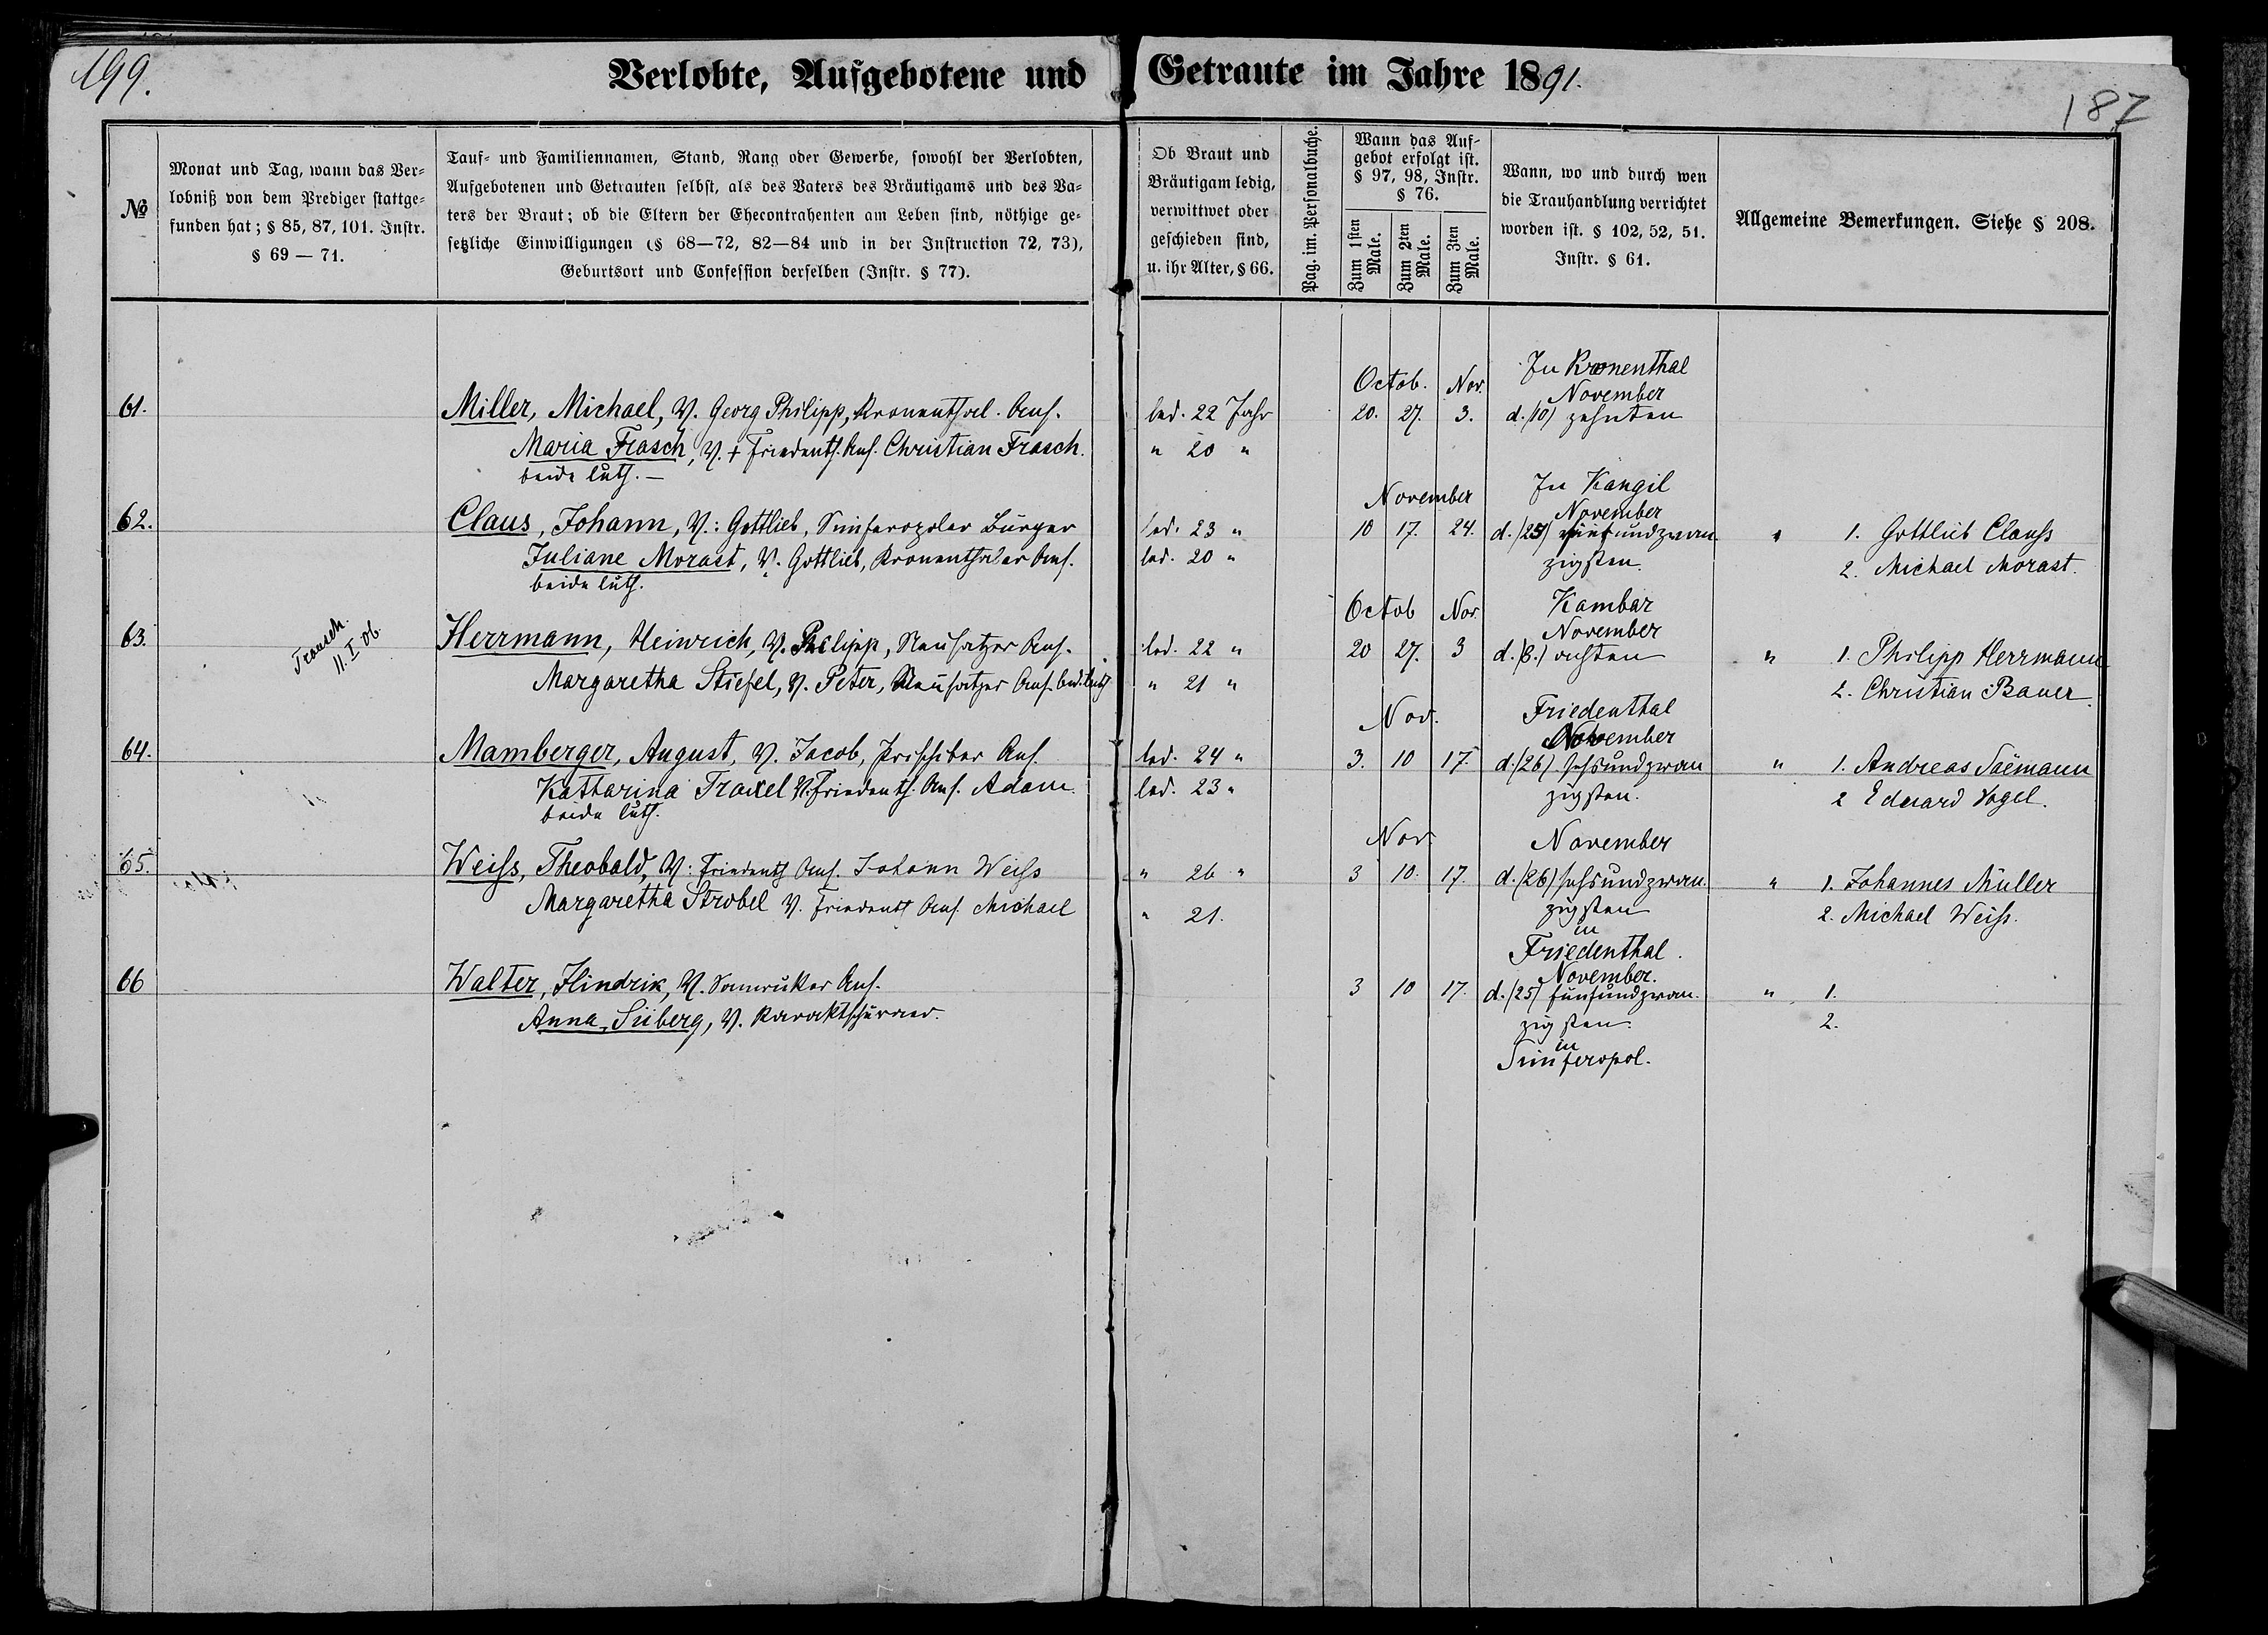 199.
Verlobte, Aufgebotene und Getraute im Jahre 1891.
187
№
Monat und Tag, wann das Ver-
lobniß von dem Prediger stattge-
funden hat; § 85, 87, 101. Instr.
§ 69 — 71.
Tauf- und Familiennamen, Stand, Rang oder Gewerbe, sowohl der Verlobten,
Aufgebotenen und Getrauten selbst, als des Vaters des Bräutigams und des Va-
ters der Braut; ob die Eltern der Ehecontrahenten am Leben sind, nöthige ge-
setzliche Einwilligungen (§ 68—72, 82—84 und in der Instruction 72, 73),
Geburtsort und Confession derselben (Instr. § 77).
Ob Braut und
Bräutigam ledig,
verwittwet oder
geschieden sind,
u. ihr Alter, § 66.
Pag. im. Personalbuche.
Wann das Auf-
gebot erfolgt ist.
§ 97, 98, Instr.
§ 76.
Zum 1sten
Male.
Zum 2ten
Male.
Zum 3ten
Male.
Wann, wo und durch wen
die Trauhandlung verrichtet
worden ist. § 102, 52, 51.
Instr. § 61.
Allgemeine Bemerkungen. Siehe § 208.
In Kronenthal
Octob. Nov. November
61. Miller, Michael, V. Georg Philipp, Kronenthal. Ans. led. 22 Jahr 20. 27. 3. d. /10/ zehnten
Maria Frasch, V. + Friedenth. Ans. Christian Frasch. " 20 "
beide luth. —
In Kangil
November November
62. Claus, Johann, V.: Gottlieb, Simferopoler Bürger led. 23 " 10 17. 24. d. /25/ fünfundzwan- " 1. Gottlieb Clauss
Juliane Morast, V. Gottlieb, Kronenthaler Ans. led. 20 " zigsten. 2. Michael Morast.
beide luth.
Kambar
Octob Nov. November
Trausch.
11. I. 06.
63. Herrmann, Heinrich, V. Philipp, Neusatzer Ans. led. 22 " 20 27. 3 d. /8./ achten " 1. Philipp Herrmann
Margaretha Stiefel, V. Peter, Neusatzer Ans. beid. luth " 21 " 2. Christian Bauer.
Friedenthal
Nov. November
64. Mamberger, August, V. Jacob, Prischiber Ans. led. 24 " 3. 10 17. d. /26/ sechsundzwan " 1. Andreas Säemann
Katharina Traxel V. Friedenth. Ans. Adam. led. 23 " zigsten. 2 Eduard Vogel.
beide luth.
Nov. November
65. Weiss, Theobald, V: Friedenth Ans. Johann Weiss " 26 " 3 10. 17. d. /26/ sechsundzwan- " 1. Johannes Müller
Margaretha Strobel V. Friedenth Ans. Michael " 21. zigsten 2. Michael Weiss.
in
Friedenthal.
November.
66 Walter, Hindrik, V. Samruker Ans. 3 10 17. d. /25/ fünfundzwan- " 1.
Anna Siiberg, V. zigsten. 2.
in
Simferopol.